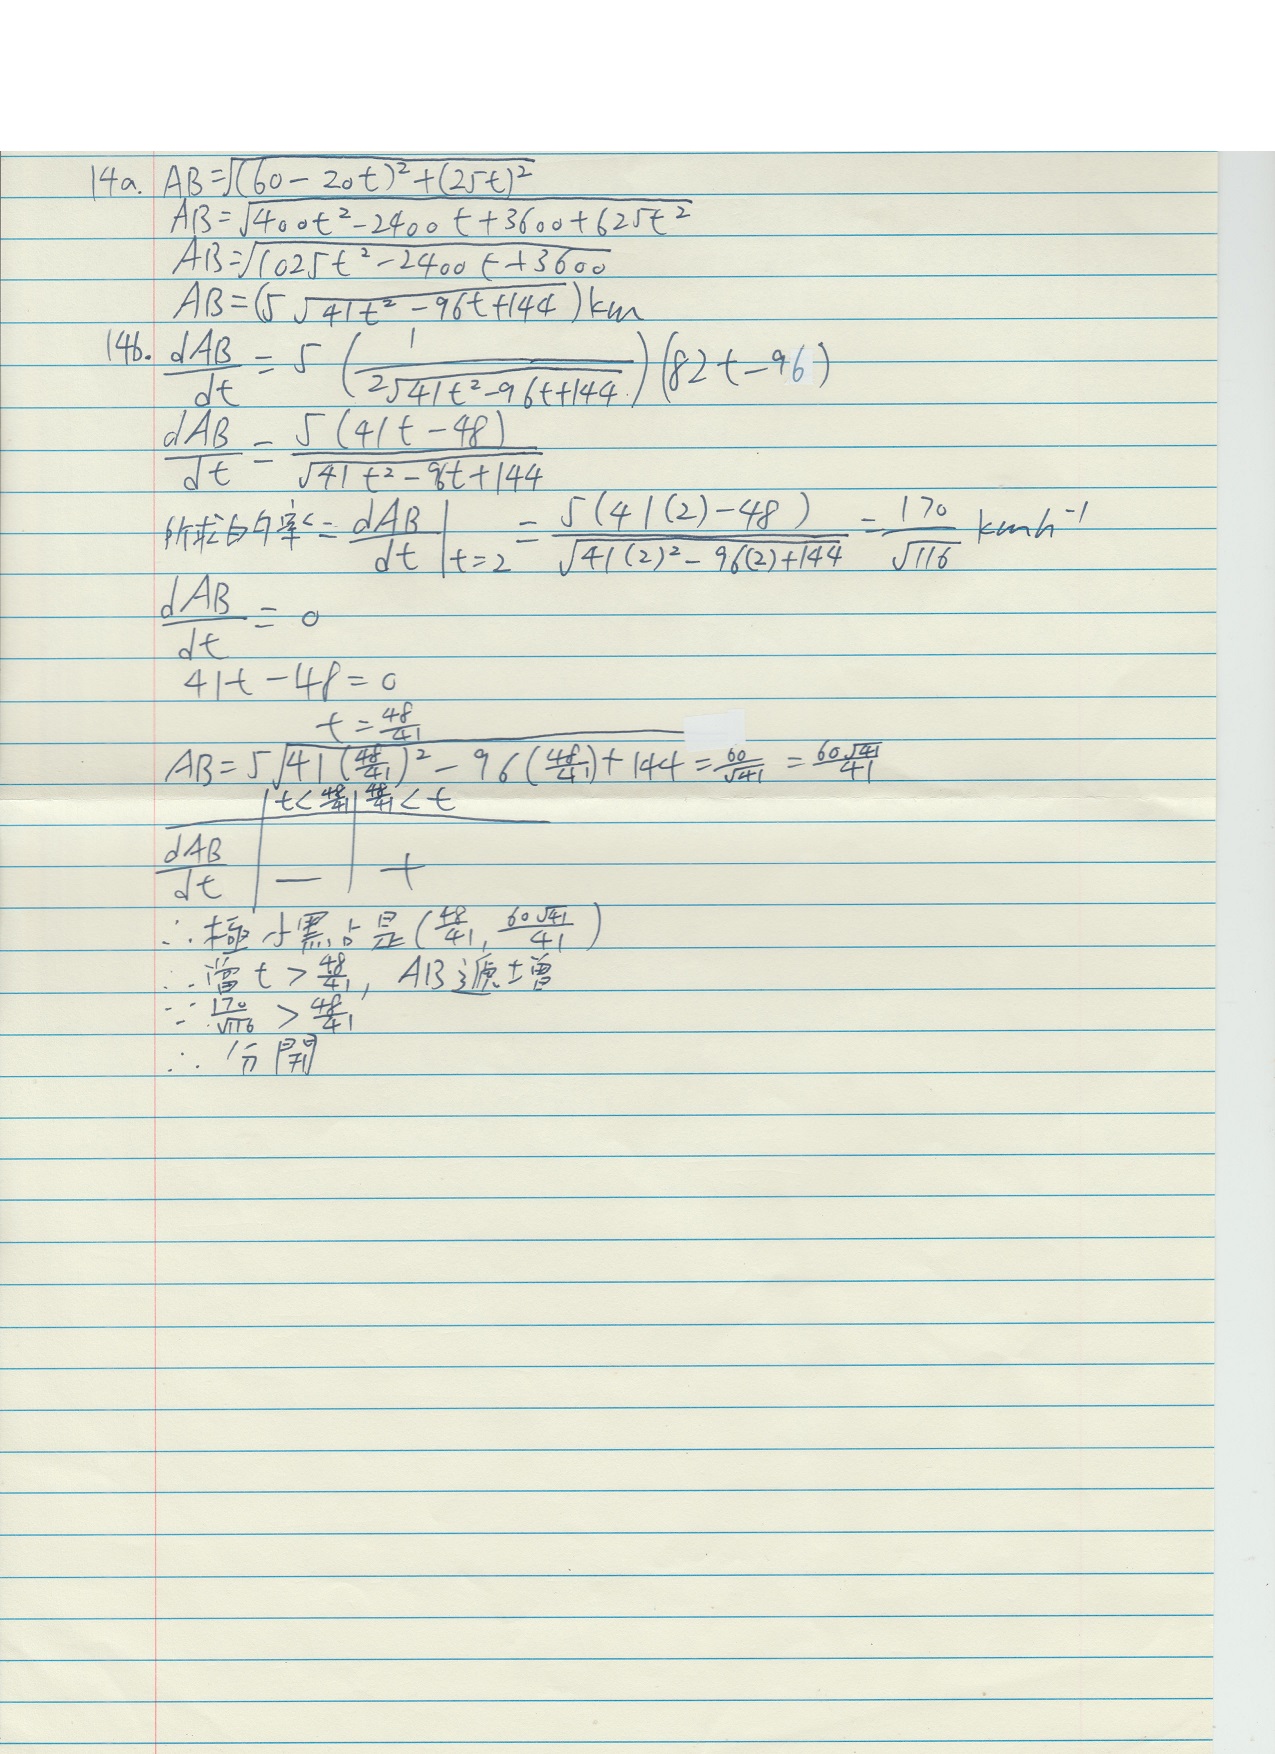 14a. AB=√((60-20t)²+(25t)²)
AB=√(400t²-2400t+3600+625t²)
AB=√(1025t²-2400t+3600)
AB=(5√(41t²-96t+144))km
14b. dAB/dt = 5(1/(2√(41t²-96t+144)))(82t-96)
dAB/dt = 5(41t-48)/√(41t²-96t+144)
所求的率=dAB/dt|t=2 = 5(41(2)-48)/√(41(2)²-96(2)+144) = 170/√116 kmh⁻¹
dAB/dt = 0
41t-48=0
t=48/41
AB=5√(41(48/41)²-96(48/41)+144)=60/√41=60√41/41
t<48/41 48/41<t
dAB/dt - +
∴極小點是(48/41, 60√41/41)
∴當t>48/41, AB遞增
∵170/√116>48/41
∴分開